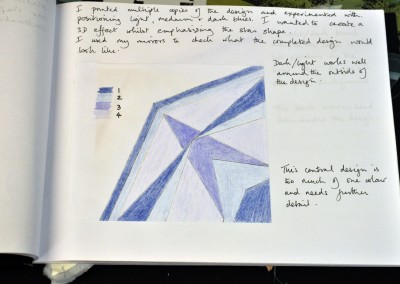 I printed multiple copies of the design and experimented with
positioning light, medium & dark blues. I wanted to create a
3D effect whilst emphasizing the star shape.
I used my mirrors to check what the completed design would
look like.
Dark/light works well
around the outsides of
the design.
1
2
3
4
This central design is
too much of one colour
and needs further
detail.